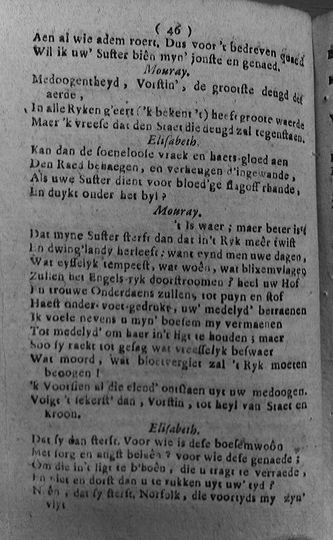 ( 46 )
Aen al wie adem roert. Dus voor 't bedreven quaed
Wil ik uw' Suster biên myn' jonste en genaed.
Mouray.
Medoogentheyd, Vorstin', de grootste deugd der
aerde,
In alle Ryken g'eert ('k bekent 't) heeft groote waerde
Maer 'k vreese dat den Staet die deugd zal tegenstaen.
Elisabeth.
Kan dan de soeneloose vraek en haets-gloed aen
Den Raed behaegen, en verheugen d'ingewande,
Als uwe Suster dient voor bloed'ge slagoffrhande,
En duykt onder het byl?
Mouray.
't Is waer; maer beter is't
Dat myne Suster sterft dan dat in't Ryk meêr twist
En dwing'landy herleeft; want eynd men uwe dagen,
Wat eysselyk tempeest, wat woên, wat blixemvlagen
Zullen het Engels-ryk doorstroomen? heel uw Hof
En trouwe Onderdaens zullen, tot puyn en stof
Haest onder-voet-gedrukt, uw' medelyd' betraenen
Ik voele nevens u myn' boesem my vermaenen
Tot medelyd' om haer in't ligt te houden; maer
Soo sy raekt tot gesag wat vreesselyk beswaer
Wat moord, wat bloetvergiet zal 't Ryk moeten
beoogen!
'k Voorsien al die elend' ontstaen uyt uw medoogen.
Volgt 't sekerst' dan, Vorstin, tot heyl van Staet en
Kroon.
Elisabeth.
Dat sy dan sterft. Voor wie is dese boesemwoôn
Met sorg en angst belaên? voor wie dese genaede;
Om die in't ligt te b'hoên, die u tragt te verraede,
En niet en dorst dan u te rukken uyt uw' tyd?
Neên, dat sy sterft. Norfolk, die voortyds my zyn'
vlyt